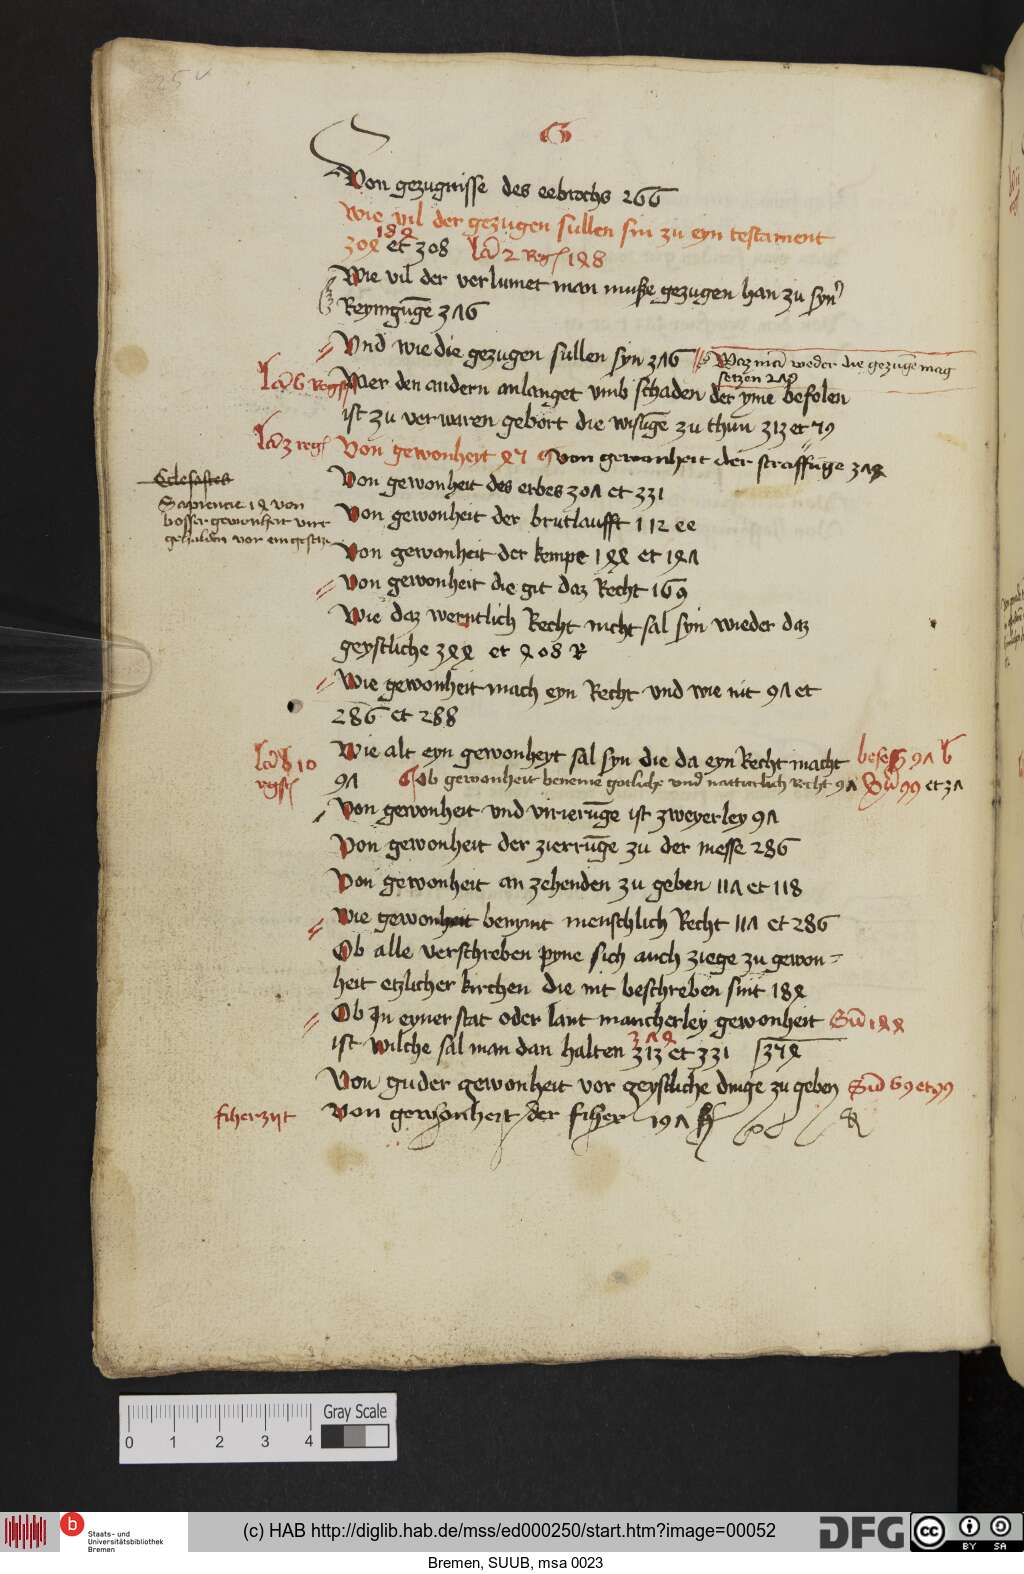 25v
G
Von gezugnisse des eebrochs 266
Wie vil der gezugen sullen sin zu eyn testament
188
304 et 308 2 Reg 148
Wie vil der verlumet man musze gezugen han zu syner
Reyngunge 316
Und wie die gezugen sullen syn 316 weder die gezugen mag
setzen
6 Regst Wer den andern anlanget umb schaden der yme befolen
ist zu verwaren gehort die wisunge zu thun 313 et 79
3 regst Von gewonheit 47 von gewonheit der straffunge 314
Eclesastes
Von gewonheit des erbes 301 et 331
Sapiencie 14 von
bosser gewonheit
Von gewonheit der brutlaufft 112 ee
gehalden vor ein gesetz
Von gewonheit der kempe 144 et 141
Von gewonheit die git daz Recht 169
Wie daz werntlich Recht nicht sal syn wieder daz
geystliche 344 et 408 R
Wie gewonheit mach eyn Recht und wie nit 91 et
286 et 288
Wie alt eyn gewonheyt sal syn die da eyn Recht macht besess 91 b
10
91 Ob gewonheit beneme gotliche und naturlich recht 91 99 et 31
regst
Von gewonheit und virierunge ist zweyerley 91
Von gewonheit der zierrunge zu der messe 286
Von gewonheit an zehenden zu geben 111 et 118
Wie gewonheit benymt menschlich Recht 111 et 286
Ob alle verschreben pyne sich auch ziege zu gewon-
heit etzlicher kirchen die nit beschreben sint 184
Ob In eyner stat oder lant mancherley gewonheit Sum 144
ist wilche sal man dan halten 313 et 331 374
Von guder gewonheit vor geystliche dinge zu geben Sum 69 et 99
fiherzijt Von gewonheit der fiher 191
0 1 2 3 4
Gray Scale
Staats- und
Universitätsbibliothek
Bremen
(c) HAB http://diglib.hab.de/mss/ed000250/start.htm?image=00052
DFG
CC BY SA
Bremen, SUUB, msa 0023